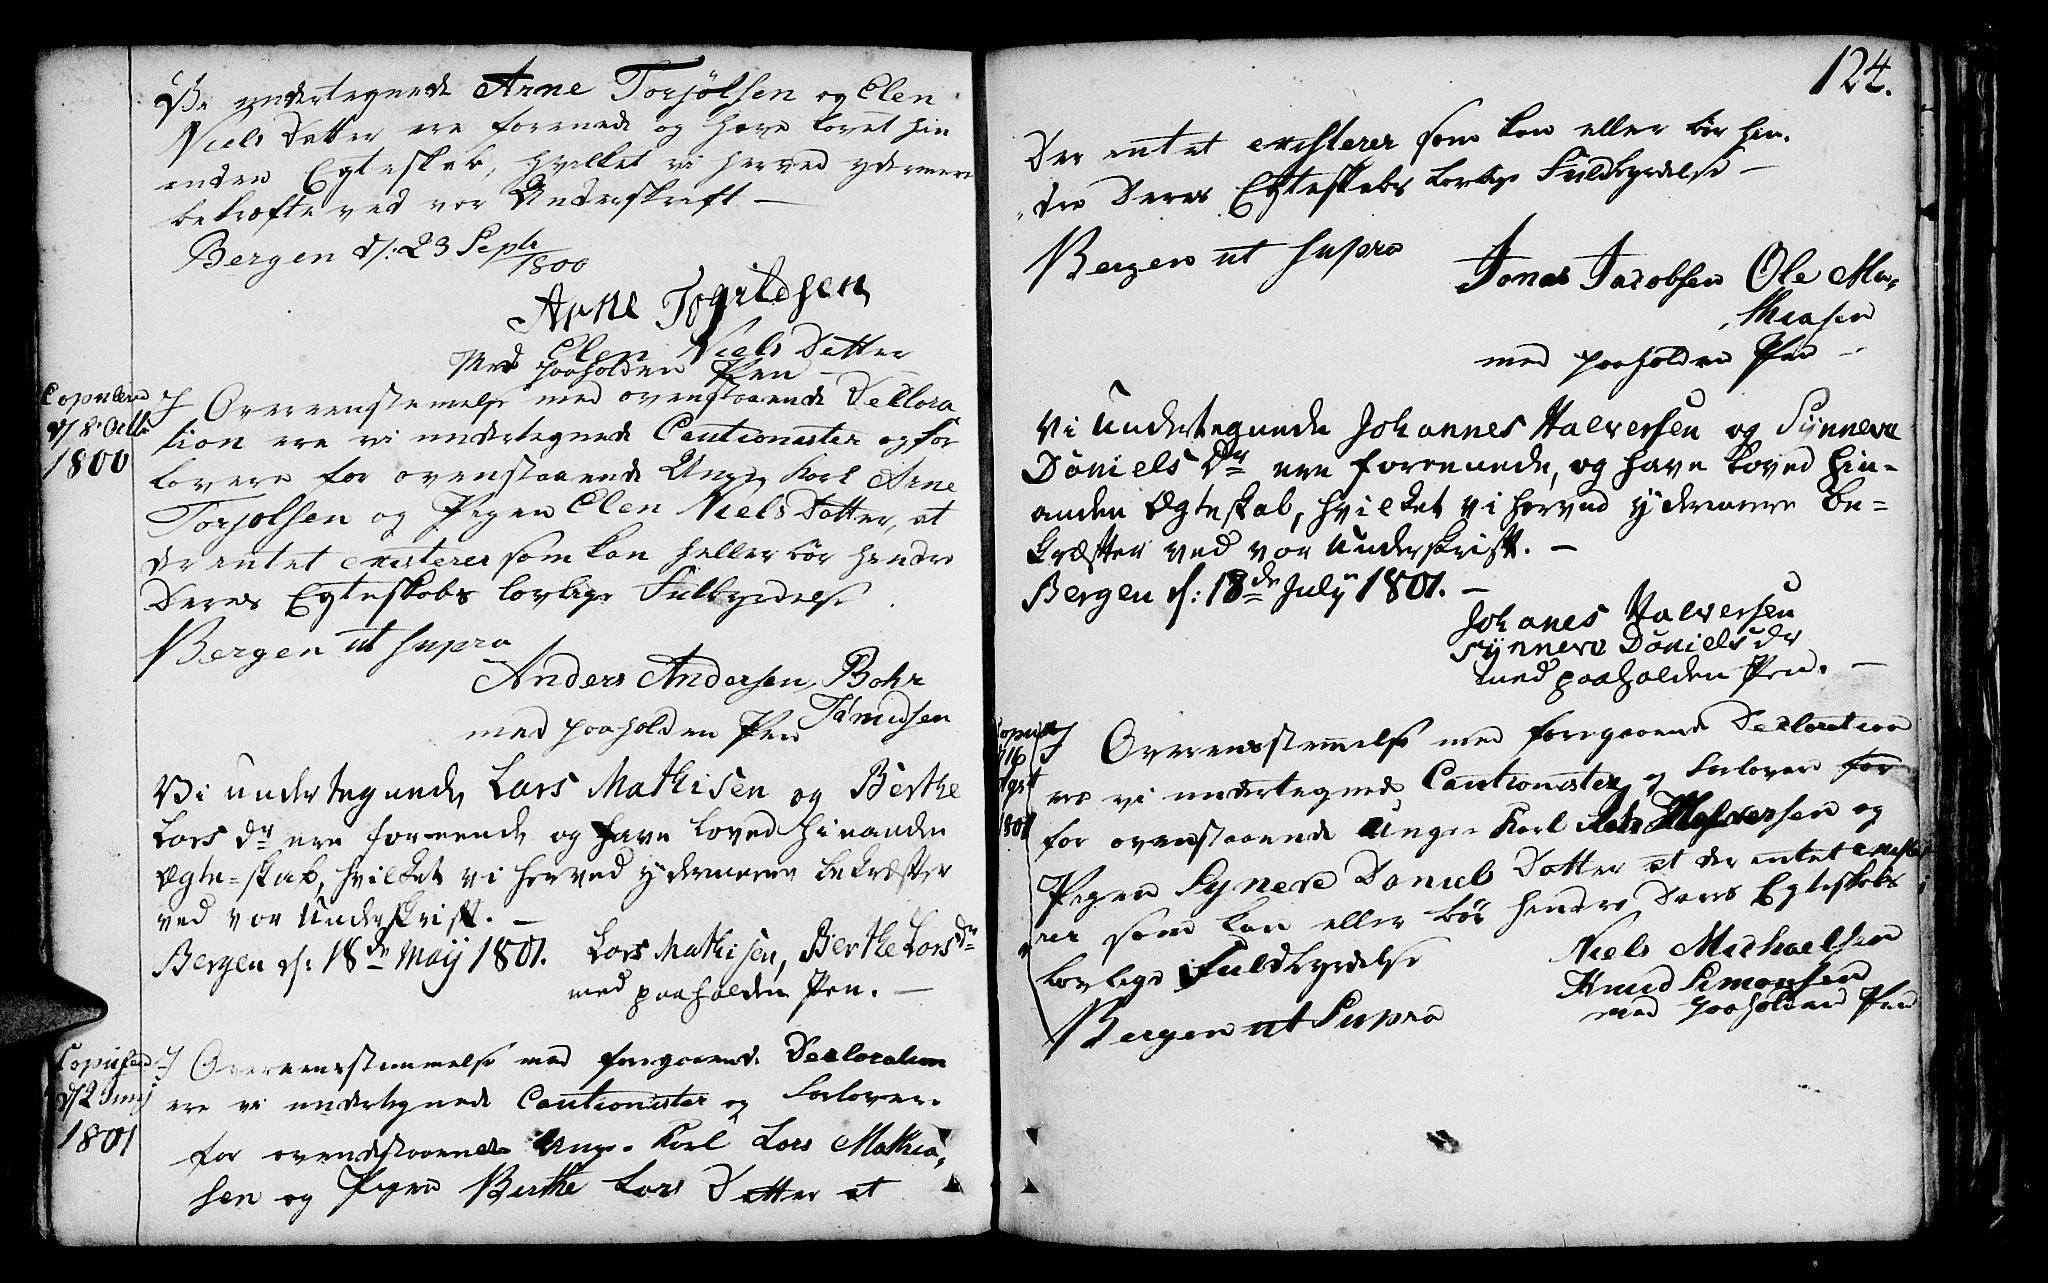 Vi undertegnede Arne Torjølsen og Elen
Niels Datter ere forenede og have lovet hin
anden Egteskab, hvilket vi herved ydermere
bekræfte ved vor Underskrift —
Bergen d/: 23 Septr 1800
Arne Tørildsen
Elen Niels Datter
Med paaholden Pen —
Copulered
d/ 8 Octb
1800
I Overeenstemelse med ovenstaaende Declara
tion ere vi undertegnede Cautionister og for
lovere for ovenstaaende Unge Karl Arne
Torjolsen og Pigen Elen Niels Datter, at
der intet existerer som kan heller bør hindre
Deres Egteskabs lovlige Fulbyrdelse.
Bergen ut supra
Anders Andersen, Bohr
med paaholden Pen
Vi undertegnede Lars Mathisen og Berthe
Lars dr ere foreenede og have loved hinanden
Ægte-skab, hvilket vi herved ydermeere bekræfter
ved vor Underskrift. —
Bergen d: 18de Maÿ 1801. Lars Mathisen, Berthe Larsdr
med paaholden Pen. —
Copulered
d/2 Junij
1801
I Overeensstemmelse med foregaaende Declaration
ere vi undertegnede Cautionister og Forlovere
for ovenstaaende Unge Karl Lars Mathia,
sen og Pigen Berthe Lars Datter at
124.
Der intet existerer som kan eller bør hin,
dre Deres Egteskabs lovlige Fuldbyrdelse —
Bergen ut supra
Jonas Jacobsen Ole Ma,
thiasen
med paaholden Pen —
Vi Undertegnede Johannes Halversen og Synneve
Daniels Dr ere foreenede, og have loved hin-
anden Ægteskab, hvilket vi herved ÿdermeere be-
kræfter ved vor Underskrift. —
Bergen d: 18de Julÿ 1801. —
Johanes Halversen
Synneve Danielsdr
med paaholden Pen. —
16
1801
I Overensstemelse med foregaaende Declaration
ere vi undertegnede Cautionister og Forlovere for
for ovenstaaende Unge Karl Halversen og
Pigen Syneve Daniels Datter at der intet existe
rer som kan eller bør hindre Deres Egteskabs
lovlige Fuldbyrdelse
Niels Michaelsen
Knud Simonsen
med paaholden Pen
Bergen ut Supra